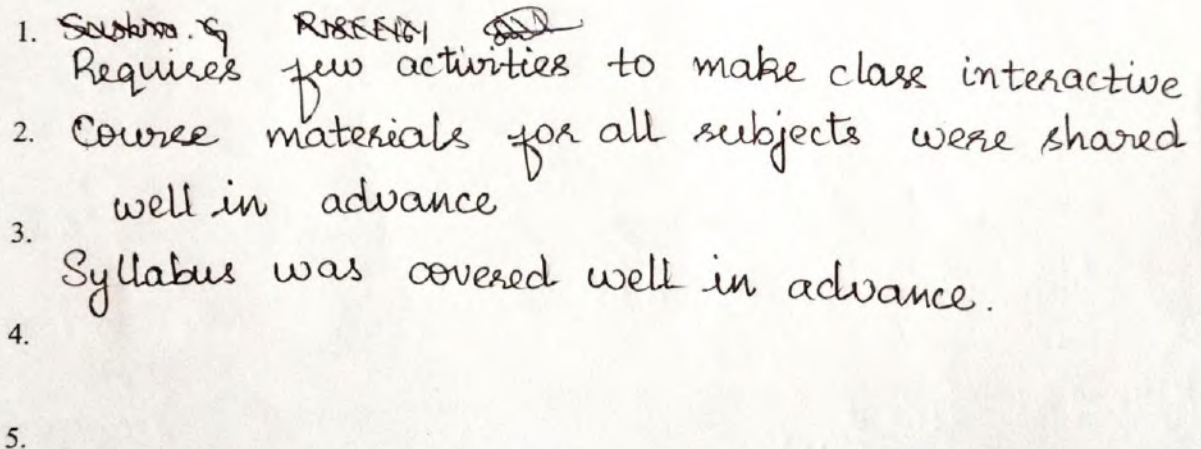 1.
Requires few activities to make class interactive
2. Course materials for all subjects were shared
well in advance
3.
Syllabus was covered well in advance.
4.
5.